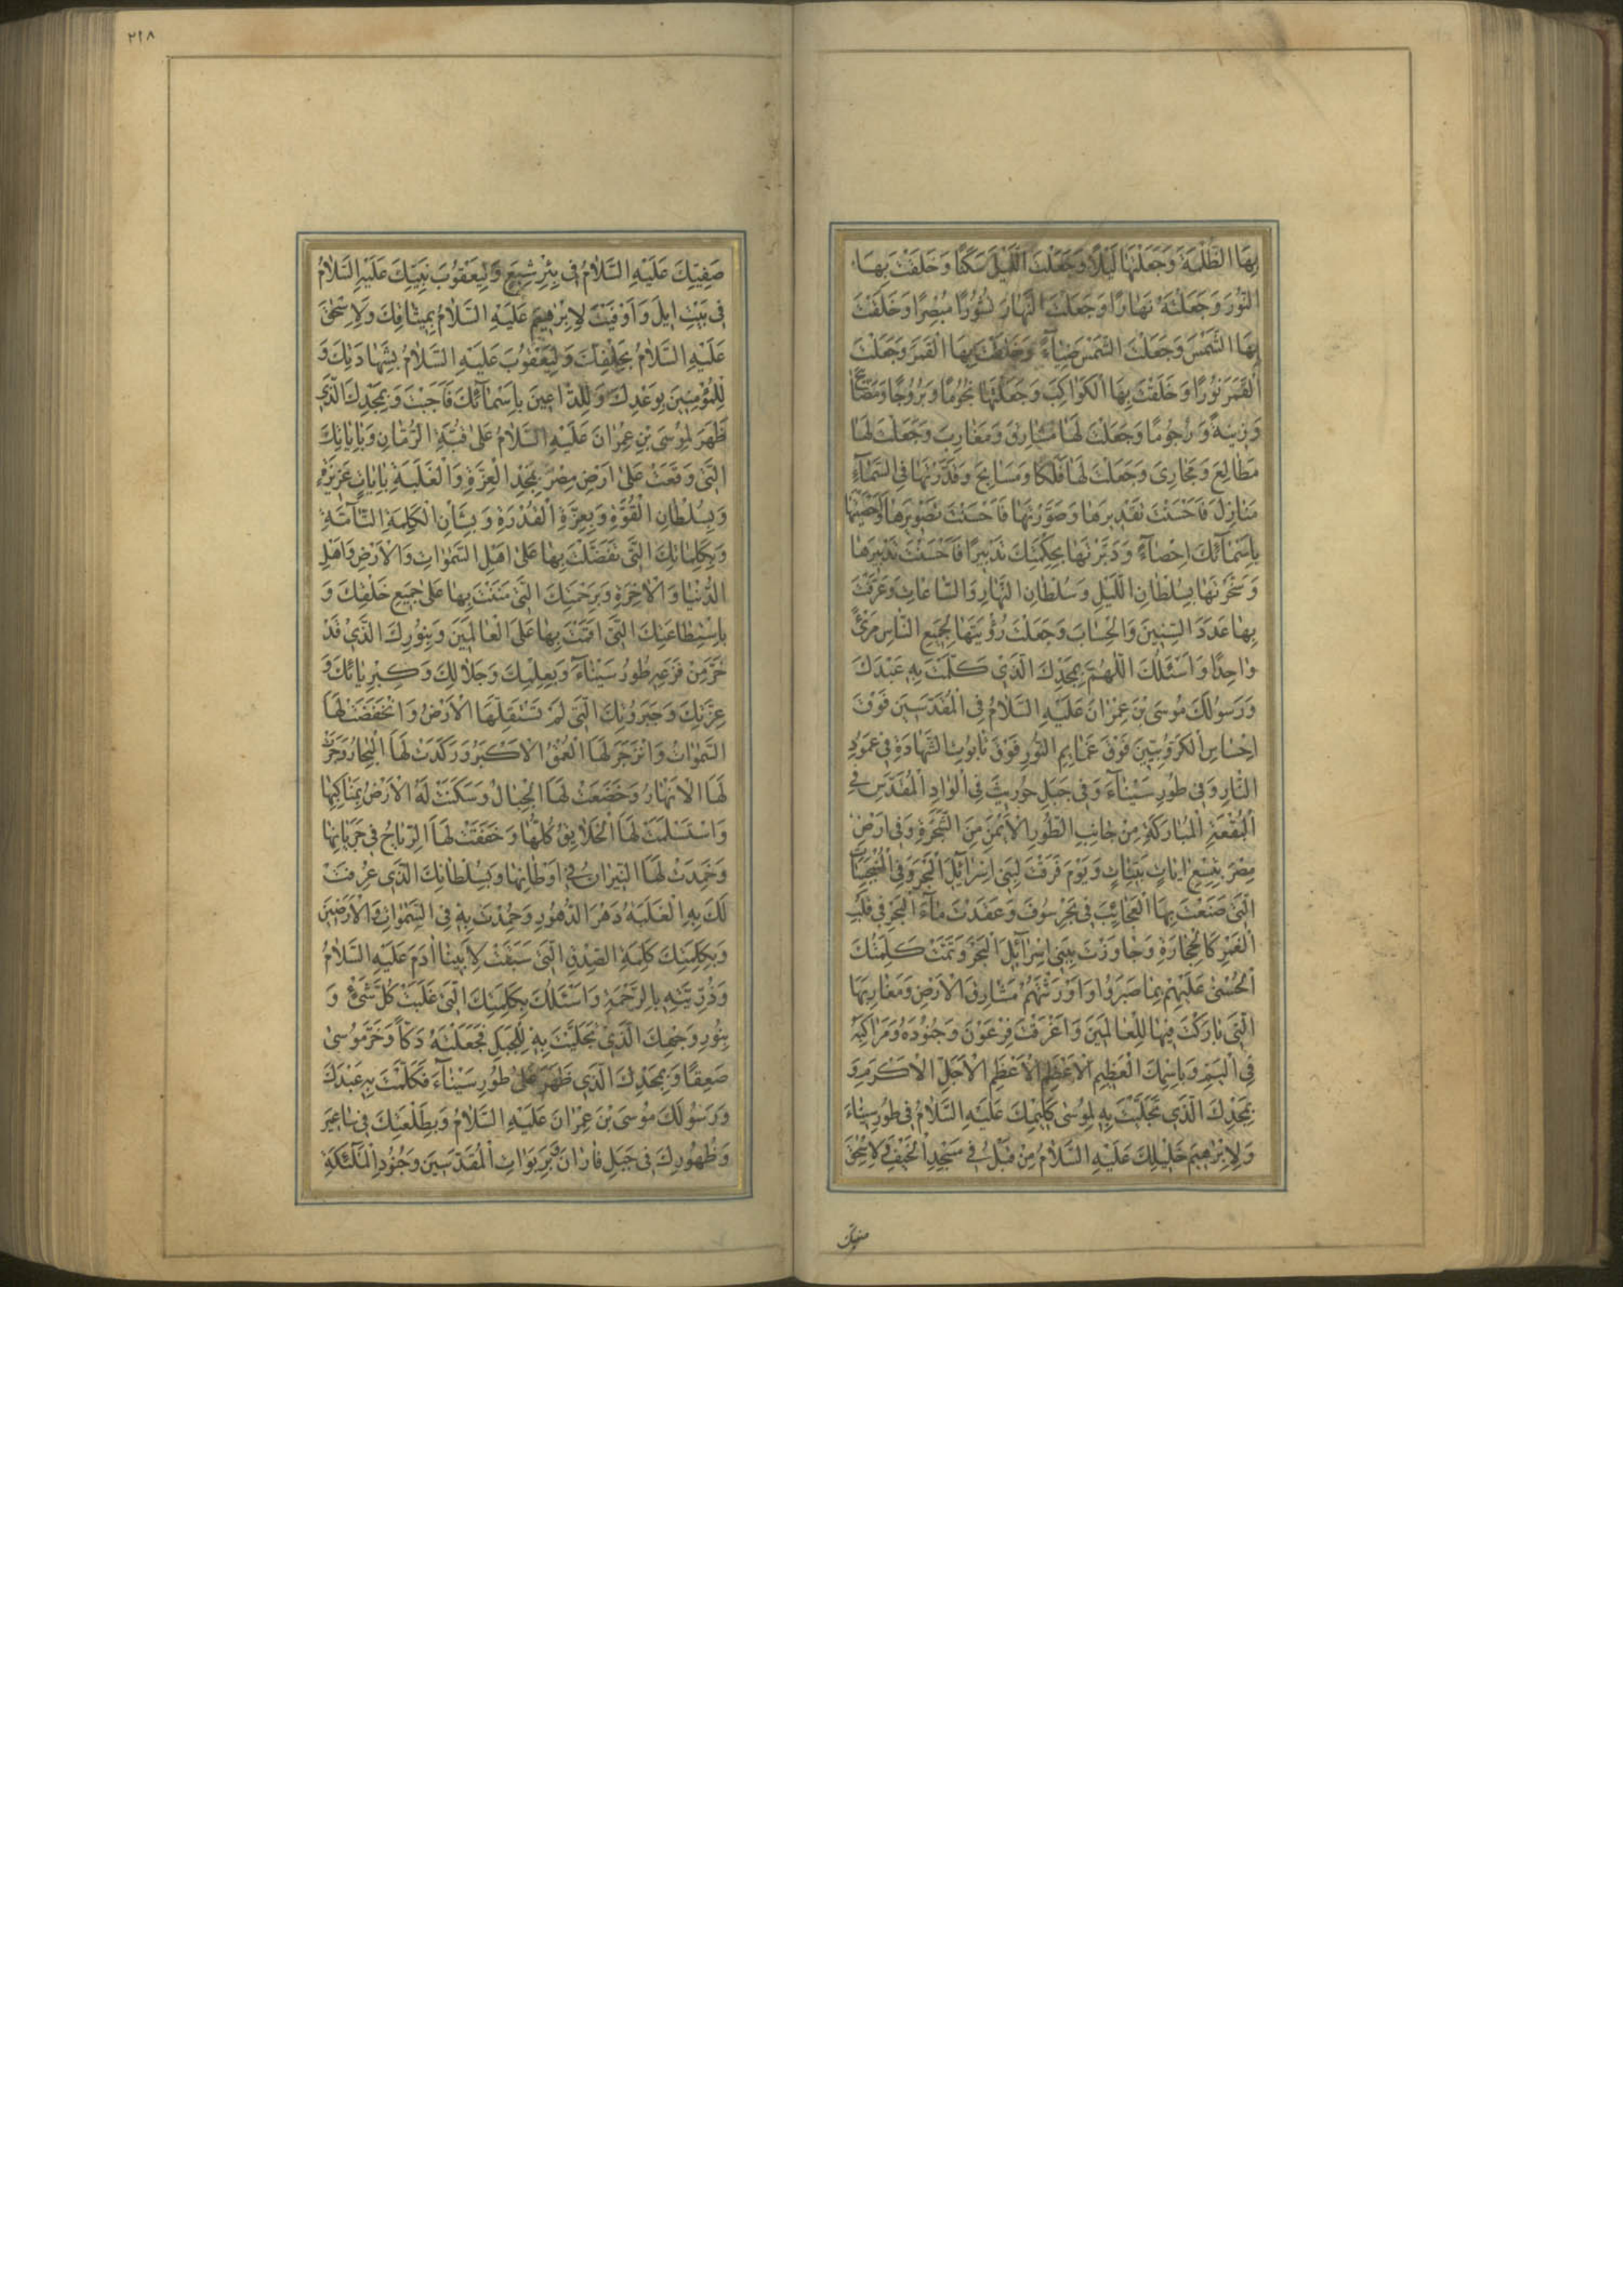 بِهَا الظُّلْمَةَ وَجَعَلْتَهَا لَيْلًا وَجَعَلْتَ اللَّيْلَ سَكَنًا وَخَلَقْتَ بِهَا
النُّورَ وَجَعَلْتَهُ نَهَارًا وَجَعَلْتَ النَّهَارَ نُشُورًا مُبْصِرًا وَخَلَقْتَ
بِهَا الشَّمْسَ وَجَعَلْتَ الشَّمْسَ ضِيَاءً وَخَلَقْتَ بِهَا الْقَمَرَ وَجَعَلْتَ
الْقَمَرَ نُورًا وَخَلَقْتَ بِهَا الْكَوَاكِبَ وَجَعَلْتَهَا نُجُومًا وَبُرُوجًا وَمَصَابِيحَ
وَزِينَةً وَرُجُومًا وَجَعَلْتَ لَهَا مَشَارِقَ وَمَغَارِبَ وَجَعَلْتَ لَهَا
مَطَالِعَ وَمَجَارِيَ وَجَعَلْتَ لَهَا فَلَكًا وَمَسَابِحَ وَقَدَّرْتَهَا فِي السَّمَاءِ
مَنَازِلَ فَاَحْسَنْتَ تَقْدِيرَهَا وَصَوَّرْتَهَا فَاَحْسَنْتَ تَصْوِيرَهَا وَاَحْصَيْتَهَا
بِاَسْمَائِكَ اِحْصَاءً وَدَبَّرْتَهَا بِحِكْمَتِكَ تَدْبِيرًا فَاَحْسَنْتَ تَدْبِيرَهَا
وَسَخَّرْتَهَا بِسُلْطَانِ اللَّيْلِ وَسُلْطَانِ النَّهَارِ وَالسَّاعَاتِ وَعَرَّفْتَ
بِهَا عَدَدَ السِّنِينَ وَالْحِسَابَ وَجَعَلْتَ رُؤْيَتَهَا لِجَمِيعِ النَّاسِ مَرْئً
وَاحِدًا وَاَسْئَلُكَ اللّٰهُمَّ بِمَجْدِكَ الَّذِي كَلَّمْتَ بِهِ عَبْدَكَ
وَرَسُولَكَ مُوسَى بْنَ عِمْرَانَ عَلَيْهِ السَّلَامُ فِي الْمُقَدَّسِينَ فَوْقَ
اِحْسَاسِ الْكَرُوبِيِّينَ فَوْقَ غَمَايِمِ النُّورِ فَوْقَ تَابُوتِ الشَّهَادَةِ فِي عَمُودِ
النَّارِ وَفِي طُورِ سَيْنَاءَ وَفِي جَبَلِ حُورِيثَ فِي الْوَادِ الْمُقَدَّسِ فِي
الْبُقْعَةِ الْمُبَارَكَةِ مِنْ جَانِبِ الطُّورِ الْاَيْمَنِ مِنَ الشَّجَرَةِ وَفِي اَرْضِ
مِصْرَ بِتِسْعِ اٰيَاتٍ بَيِّنَاتٍ وَيَوْمَ فَرَقْتَ لِبَنِي اِسْرَائِيلَ الْبَحْرَ وَفِي الْمُنْبَجِسَاتِ
الَّتِي صَنَعْتَ بِهَا الْعَجَائِبَ فِي بَحْرِ سُوفَ وَعَقَدْتَ مَاءَ الْبَحْرِ فِي قَلْبِ
الْغَمْرِ كَالْحِجَارَةِ وَجَاوَزْتَ بِبَنِي اِسْرَائِيلَ الْبَحْرَ وَتَمَّتْ كَلِمَتُكَ
الْحُسْنَى عَلَيْهِمْ بِمَا صَبَرُوا وَاَوْرَثْتَهُمْ مَشَارِقَ الْاَرْضِ وَمَغَارِبَهَا
الَّتِي بَارَكْتَ فِيهَا لِلْعَالَمِينَ وَاَغْرَقْتَ فِرْعَوْنَ وَجُنُودَهُ وَمَرَاكِبَهُ
فِي الْيَمِّ وَبِاسْمِكَ الْعَظِيمِ الْاَعْظَمِ الْاَعْظَمِ الْاَجَلِّ الْاَكْرَمِ وَ
بِمَجْدِكَ الَّذِي تَجَلَّيْتَ بِهِ لِمُوسَى كَلِيمِكَ عَلَيْهِ السَّلَامُ فِي طُورِ سَيْنَاءَ
وَلِاِبْرٰهِيمَ خَلِيلِكَ عَلَيْهِ السَّلَامُ مِنْ قَبْلُ فِي مَسْجِدِ الْخَيْفِ وَلِاِسْحٰقَ
صفيك
٢١٨
صَفِيِّكَ عَلَيْهِ السَّلَامُ فِي بِئْرِ شِيَعٍ وَلِيَعْقُوبَ نَبِيِّكَ عَلَيْهِ السَّلَامُ
فِي بَيْتِ اِيلَ وَاَوْفَيْتَ لِاِبْرٰهِيمَ عَلَيْهِ السَّلَامُ بِمِيثَاقِكَ وَلِاِسْحٰقَ
عَلَيْهِ السَّلَامُ بِحَلْفِكَ وَلِيَعْقُوبَ عَلَيْهِ السَّلَامُ بِشَهَادَتِكَ وَ
لِلْمُؤْمِنِينَ بِوَعْدِكَ وَلِلدَّاعِينَ بِاَسْمَائِكَ فَاَجَبْتَ وَبِمَجْدِكَ الَّذِي
ظَهَرَ لِمُوسَى بْنِ عِمْرَانَ عَلَيْهِ السَّلَامُ عَلَى قُبَّةِ الرُّمَّانِ وَبِاٰيَاتِكَ
الَّتِي وَقَعَتْ عَلَى اَرْضِ مِصْرَ بِمَجْدِ الْعِزَّةِ وَالْغَلَبَةِ بِاٰيَاتٍ عَزِيزَةٍ
وَبِسُلْطَانِ الْقُوَّةِ وَبِعِزَّةِ الْقُدْرَةِ وَبِشَأْنِ الْكَلِمَةِ التَّامَّةِ
وَبِكَلِمَاتِكَ الَّتِي تَفَضَّلْتَ بِهَا عَلَى اَهْلِ السَّمٰوَاتِ وَالْاَرْضِ وَاَهْلِ
الدُّنْيَا وَالْاٰخِرَةِ وَبِرَحْمَتِكَ الَّتِي مَنَنْتَ بِهَا عَلَى جَمِيعِ خَلْقِكَ وَ
بِاسْتِطَاعَتِكَ الَّتِي اَقَمْتَ بِهَا عَلَى الْعَالَمِينَ وَبِنُورِكَ الَّذِي قَدْ
خَرَّ مِنْ فَزَعِهِ طُورُ سَيْنَاءَ وَبِعِلْمِكَ وَجَلَالِكَ وَكِبْرِيَائِكَ وَ
عِزَّتِكَ وَجَبَرُوتِكَ الَّتِي لَمْ تَسْتَقِلَّهَا الْاَرْضُ وَانْخَفَضَتْ لَهَا
السَّمٰوَاتُ وَانْزَجَرَ لَهَا الْعُمْقُ الْاَكْبَرُ وَرَكَدَتْ لَهَا الْبِحَارُ وَجَرَتْ
لَهَا الْاَنْهَارُ وَخَضَعَتْ لَهَا الْجِبَالُ وَسَكَنَتْ لَهُ الْاَرْضُ بِمَنَاكِبِهَا
وَاسْتَسْلَمَتْ لَهَا الْخَلَايِقُ كُلُّهَا وَخَفَقَتْ لَهَا الرِّيَاحُ فِي جَرَيَانِهَا
وَخَمَدَتْ لَهَا النِّيرَانُ فِي اَوْطَانِهَا وَبِسُلْطَانِكَ الَّذِي عُرِفَتْ
لَكَ بِهِ الْغَلَبَةُ دَهْرَ الدُّهُورِ وَحُمِدْتَ بِهِ فِي السَّمٰوَاتِ وَالْاَرَضِينَ
وَبِكَلِمَتِكَ كَلِمَةِ الصِّدْقِ الَّتِي سَبَقَتْ لِاَبِينَا اٰدَمَ عَلَيْهِ السَّلَامُ
وَذُرِّيَّتِهِ بِالرَّحْمَةِ وَاَسْئَلُكَ بِكَلِمَتِكَ الَّتِي غَلَبَتْ كُلَّ شَيْءٍ وَ
بِنُورِ وَجْهِكَ الَّذِي تَجَلَّيْتَ بِهِ لِلْجَبَلِ فَجَعَلْتَهُ دَكًّا وَخَرَّ مُوسَى
صَعِقًا وَبِمَجْدِكَ الَّذِي ظَهَرَ عَلَى طُورِ سَيْنَاءَ فَكَلَّمْتَ بِهِ عَبْدَكَ
وَرَسُولَكَ مُوسَى بْنَ عِمْرَانَ عَلَيْهِ السَّلَامُ وَبِطَلْعَتِكَ فِي سَاعِيرَ
وَظُهُورِكَ فِي جَبَلِ فَارَانَ بِرَبَوَاتِ الْمُقَدَّسِينَ وَجُنُودِ الْمَلٰئِكَةِ